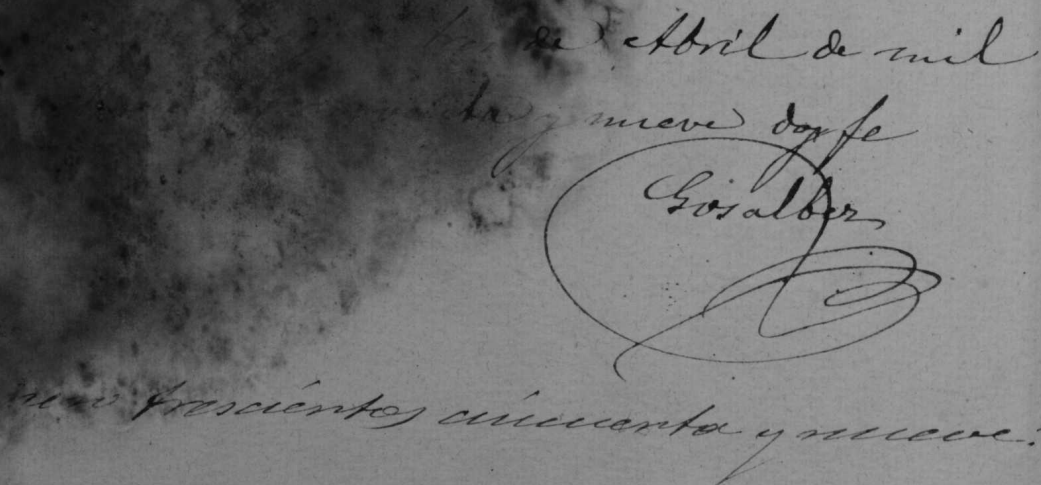 de Abril de mil
y nueve doy fe
Gosalbez
trescientos cincuenta y nueve.